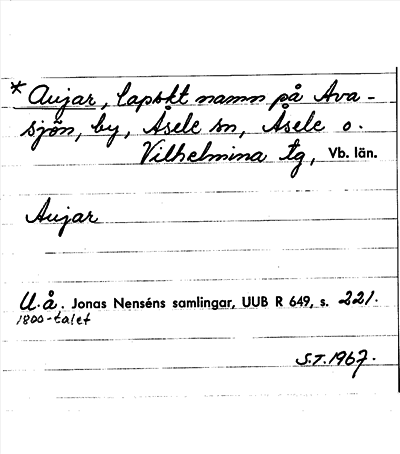 * Aujar, lapskt namn på Ava-
sjön, by, Åsele sn, Åsele o.
Vilhelmina tg, Vb. län.
Aujar
U.å. Jonas Nenséns samlingar, UUB R 649, s. 221.
1800-talet
S.T. 1967.